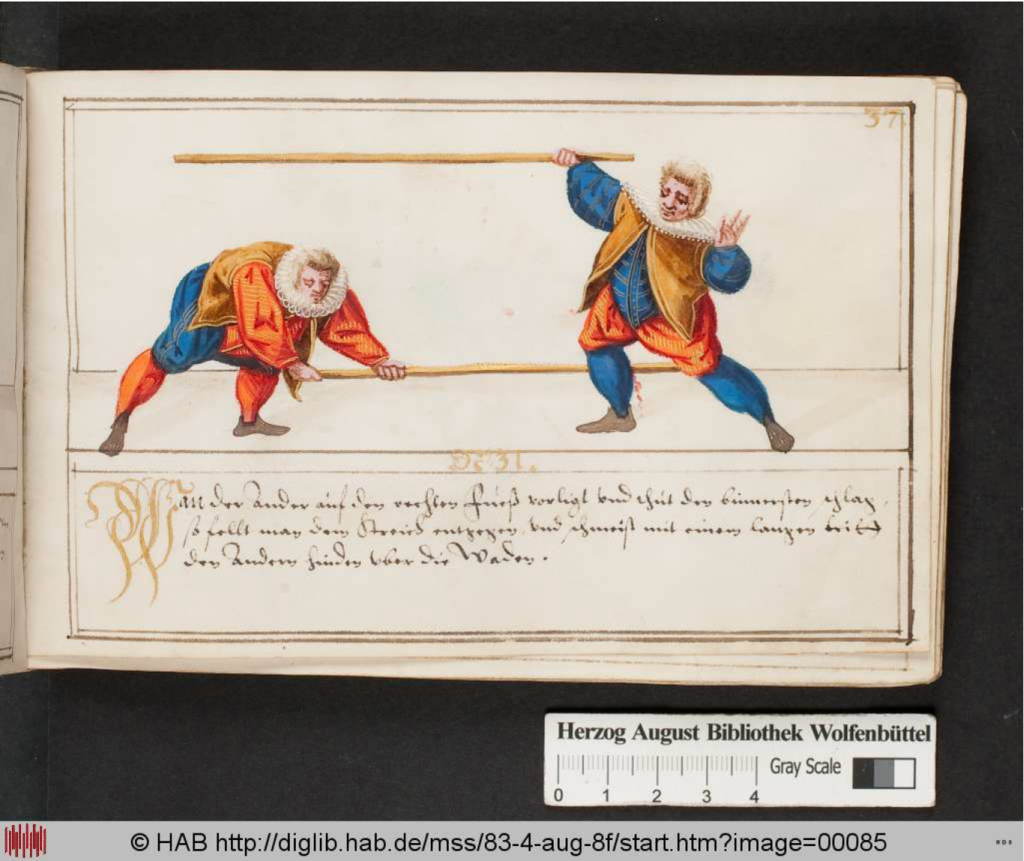 37.
No 31.
Wan der Ander auf den rechten Fueß vorligt vnd thut den binnersten schlag,
so fellt man dem Streich entgegen, vnd schmeist mit einem langen
den Andern hinden vber die Waden.
Herzog August Bibliothek Wolfenbüttel
Gray Scale
0 1 2 3 4
© HAB http://diglib.hab.de/mss/83-4-aug-8f/start.htm?image=00085